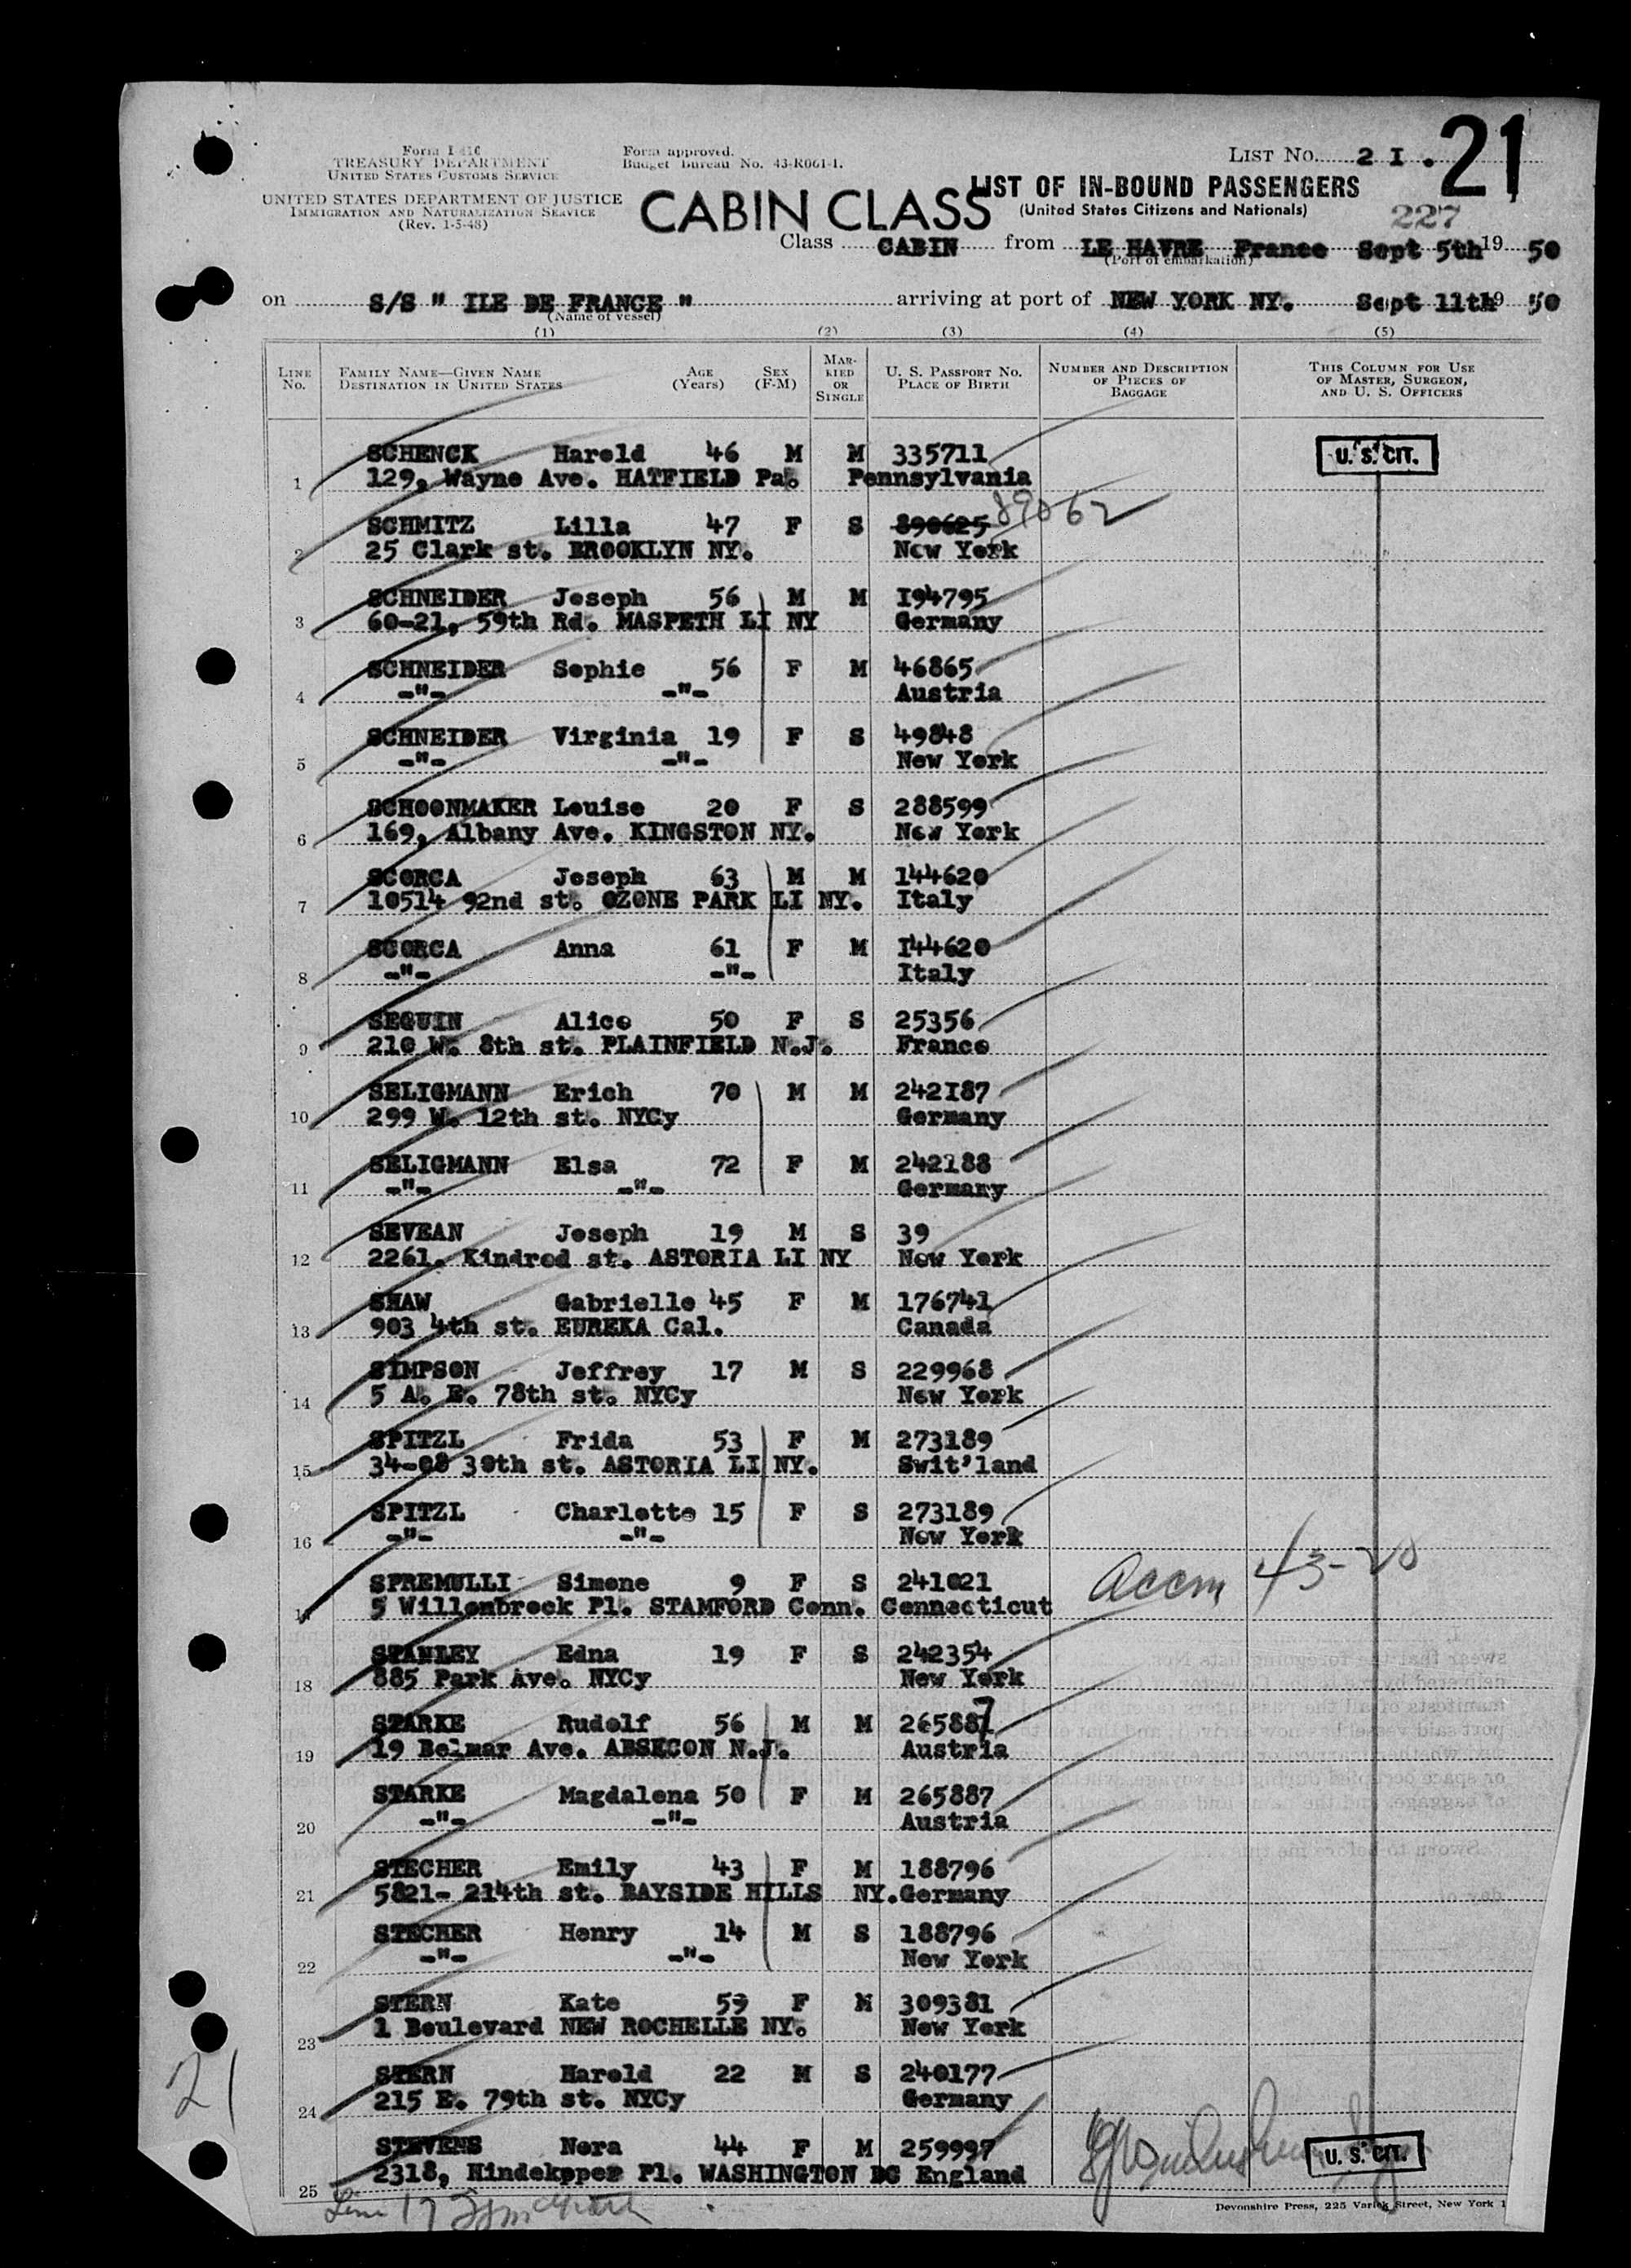 Form I 416
TREASURY DEPARTMENT
UNITED STATES CUSTOMS SERVICE
UNITED STATES DEPARTMENT OF JUSTICE
IMMIGRATION AND NATURALIZATION SERVICE
(Rev. 1-5-48)
Form approved.
Budget Bureau No. 43-R061-1.
LIST No. 2 I . 21
CABIN CLASS LIST OF IN-BOUND PASSENGERS
(United States Citizens and Nationals)
227
Class CABIN from LE HAVRE France Sept 5th 19 50
(Port of embarkation)
on S/S " ILE DE FRANCE " arriving at port of NEW YORK NY. Sept 11th 19 50
(Name of vessel)
(1) (2) (3) (4) (5)
LINE No. FAMILY NAME—GIVEN NAME DESTINATION IN UNITED STATES AGE (Years) SEX (F-M) MARRIED OR SINGLE U. S. PASSPORT NO. PLACE OF BIRTH NUMBER AND DESCRIPTION OF PIECES OF BAGGAGE THIS COLUMN FOR USE OF MASTER, SURGEON, AND U. S. OFFICERS
SCHENCK Harold 46 M M 335711 U. S. CIT.
1 129, Wayne Ave. HATFIELD Pa. Pennsylvania
SCHMITZ Lilla 47 F S 890625 89062
2 25 Clark st. BROOKLYN NY. New York
SCHNEIDER Joseph 56 M M I94795
3 60-21, 59th Rd. MASPETH LI NY Germany
SCHNEIDER Sophie 56 F M 46865
4 -"- -"- Austria
SCHNEIDER Virginia 19 F S 49848
5 -"- -"- New York
SCHOONMAKER Louise 20 F S 288599
6 169, Albany Ave. KINGSTON NY. New York
SCORCA Joseph 63 M M 144620
7 10514 92nd st. OZONE PARK LI NY. Italy
SCORCA Anna 61 F M I44620
8 -"- -"- Italy
SEGUIN Alice 50 F S 25356
9 210 W. 8th st. PLAINFIELD N.J. France
SELIGMANN Erich 70 M M 242I87
10 299 W. 12th st. NYCy Germany
SELIGMANN Elsa 72 F M 242188
11 -"- -"- Germany
SEVEAN Joseph 19 M S 39
12 2261, Kindred st. ASTORIA LI NY New York
SHAW Gabrielle 45 F M 176741
13 903 4th st. EUREKA Cal. Canada
SIMPSON Jeffrey 17 M S 229968
14 5 A. E. 78th st. NYCy New York
SPITZL Frida 53 F M 273189
15 34-08 30th st. ASTORIA LI NY. Swit'land
SPITZL Charlotte 15 F S 273189
16 -"- -"- New York
SPREMULLI Simone 9 F S 241021 accm 43-20
17 5 Willenbrock Pl. STAMFORD Conn. Connecticut
STANLEY Edna 19 F S 242354
18 885 Park Ave. NYCy New York
STARKE Rudolf 56 M M 265887
19 19 Belmar Ave. ABSECON N.J. Austria
STARKE Magdalena 50 F M 265887
20 -"- -"- Austria
STECHER Emily 43 F M 188796
21 5821- 214th st. BAYSIDE HILLS NY. Germany
STECHER Henry 14 M S 188796
22 -"- -"- New York
STERN Kate 59 F M 309381
23 1 Boulevard NEW ROCHELLE NY. New York
STERN Harold 22 M S 240177
24 215 E. 79th st. NYCy Germany
STEVENS Nora 44 F M 259997
25 2318, Hindekoper Pl. WASHINGTON DC England U. S. CIT.
21
Line 17
Devonshire Press, 225 Varick Street, New York 1